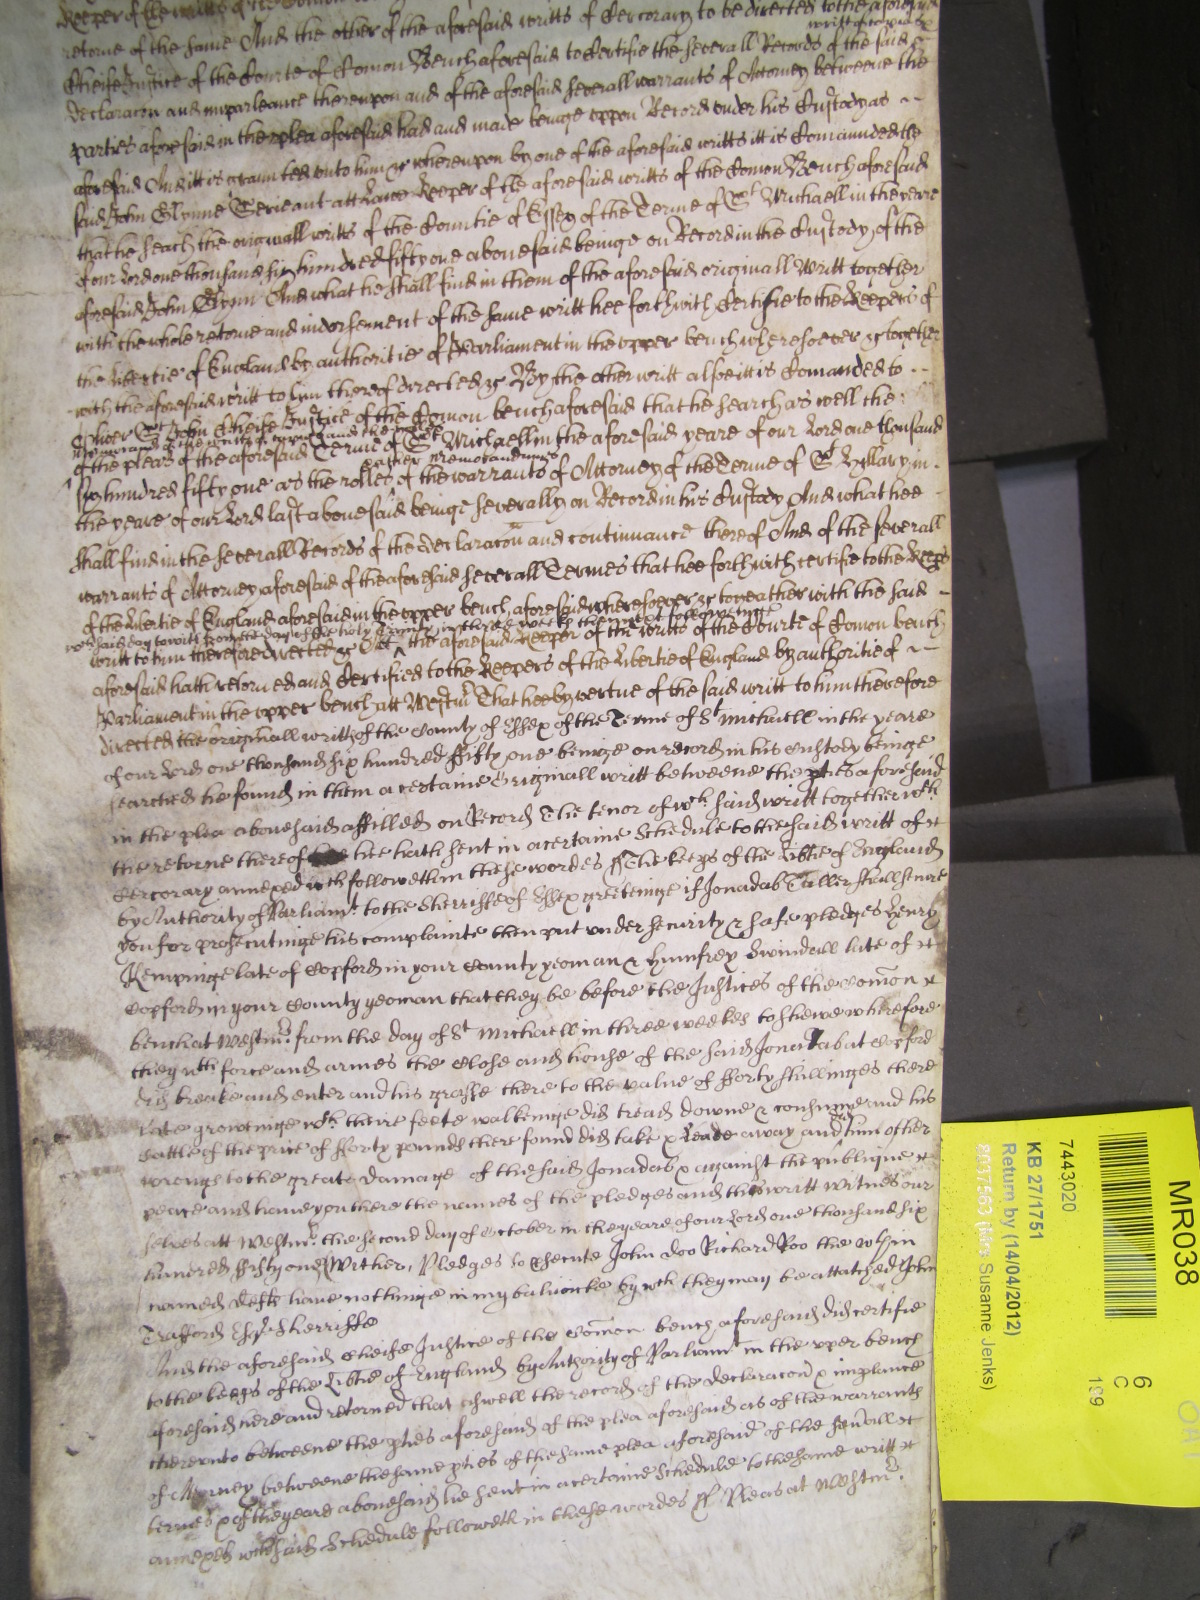 Keeper of the writts of the Comon
retorne of the same And the other of the aforesaid writts of Cercorary to be directed to the aforesaid
writt of
Cheife Justice of the Courte of Comon Bench aforesaid to Certifie the severall Records of the said
declaracon and imparleance thereupon and of the aforesaid severall warrants of Attorney betweene the
parties aforesaid in the plea aforesaid had and made beinge uppon Record under his Custody as
aforesaid And itt is graunted unto him &c whereupon by one of the aforesaid writts itt is Comaunded the
said John Glynne Serieant att Lawe Keeper of the aforesaid writts of the Comon Bench aforesaid
that he seach the originall writts of the Countie of Essex of the Terme of St Michaell in the yeare
of our Lord one thousand six hundred fifty one abovesaid beinge on Record in the Custody of the
aforesaid John Glynn And what he shall find in them of the aforesaid originall Writt together
with the whole retorne and indorsement of the same writt hee forthwith Certifie to the Keepers of
the libertie of England by authoritie of Parliament in the upper bench wheresoever &c together
with the aforesaid writt to him thereof directed &c By the other writt alsoe itt is Comanded to
Oliver St John Cheife Justice of the Comon bench aforesaid that he search as well the
of the pleas of the aforesaid Terme of St Michaell in the aforesaid yeare of our Lord one thousand
other memorandums
six hundred fifty one as the rolles of the warrants of Attorney of the Terme of St Hyllary in
the yeare of our Lord last abovesaid beinge severally on Record in his Custody And what hee
shall find in the severall Records of the declaracon and continuance thereof And of the severall
warrants of Attorney aforesaid of the aforesaid severall Termes that hee forthwith certifie to the Keeps
of the libertie of England aforesaid in the upper bench aforesaid wheresoever &c togeather with the said
day to witt from the day of the holy Trinity in three weeks then next followeinge
writt to him therefore directed &c Att the aforesaid Keeper of the writts of the Courte of Comon bench
aforesaid hath retorned and Certified to the Keepers of the libertie of England by authoritie of
Parliament in the upper bench att Westmr That hee by vertue of the said writt to him therefore
directed the originall writts of the County of Essex of the Terme of St Michaell in the yeare
of our Lord one thousand six hundred ffifty one beinge on record in his custody beinge
searched he found in them a certaine Originall writt betweene the pties aforesaid
in the plea abovesaid affilled on Record The tenor of wch said writt together wth
the retorne thereof hee hath sent in a certaine Schedule to the said writt of
Cercorary annexed wch followeth in these wordes ss The keeps of the libtie of England
by Authority of Parliamt to the Sherriffe of Essex greeteinge if Jonadab Tiller shall secure
you for prosecutinge his complainte then put under security & safe pledges Henry
Kempinge late of Copford in your County yeoman & Humfrey Swindell late of
Copford in your County yeoman that they be before the Justices of the Comon
bench at Westmr from the day of St Michaell in three weekes to shewe wherefore
they wth force and armes the Close and house of the said Jonadab at Copford
did breake and enter and his grasse there to the value of fforty shillinges there
late groweinge wth theire feete walkeinge did tread downe & consume and his
cattle of the price of fforty pounds there found did take & leade away and him other
wrongs to the greate damage of the said Jonadab & against the publique
peace and have you there the names of the pledges and this writt Witnes our
selves att Westmr the second day of October in the yeare of our Lord one thousand six
hundred ffifty one Wither, Pledges to psecute John Doo Richard Roo the wthin
named defts have nothinge in my baliwicke by wch they may be attatched John
Trafford Esqr Sherriffe
And the aforesaid Cheife Justice of the Comon bench aforesaid did certifie
to the keeps of the libtie of England by Authority of Parliamt in the upper bench
aforesaid here and retorned that aswell the record of the declaracon & implance
thereunto betweene the pties aforesaid of the plea aforesaid as of the warrants
of Attorney betweene the same pties of the same plea aforesaid of the severall
termes & of the yeare abovesaid he sent in a certaine Schedule to the same writt
annexed wch said Schedule followeth in these wordes ss Pleas at Westmr
MR038
7443020
KB 27/1751
Return by (14/04/2012)
8037563 (Mrs Susanne Jenks)
6
C
199